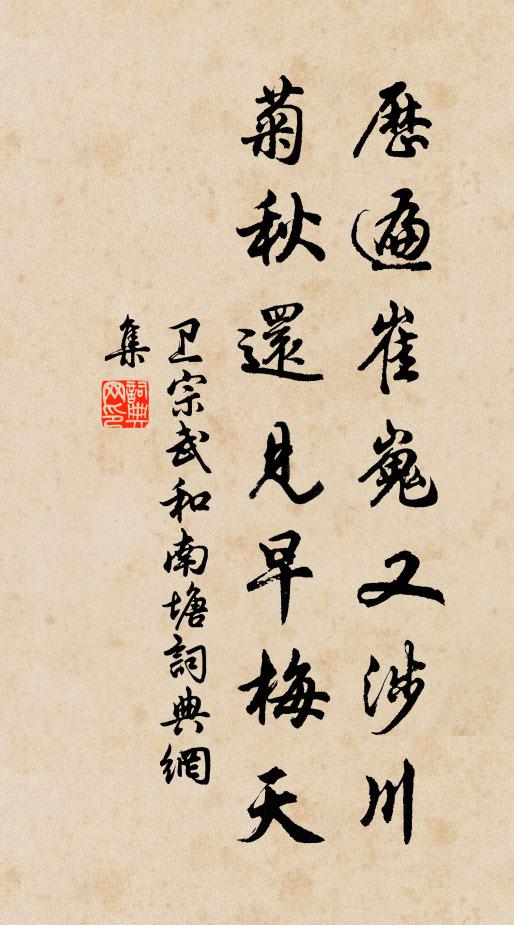 歷遍崔嵬又涉川
菊秋還見早梅天
卫宗武和南塘詞典網
集
詞典網印